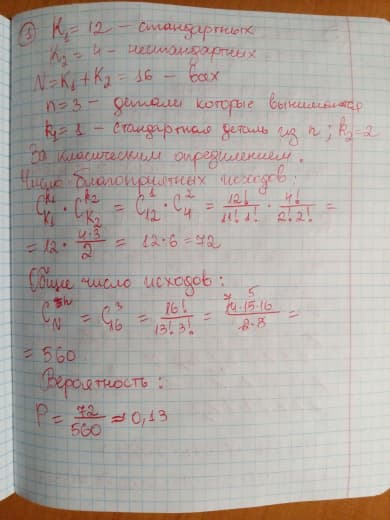 ① K₁ = 12 – стандартных
K₂ = 4 – нестандартных
N = K₁ + K₂ = 16 – всех
n = 3 – детали которые вынимаются
k₁ = 1 – стандартная деталь из n; k₂ = 2
За классическим определением.
Число благоприятных исходов:
C_{K₁}^{k₁} · C_{K₂}^{k₂} = C_{12}^{1} · C_{4}^{2} = 12!/(11! 1!) · 4!/(2! 2!) =
= 12 · (4·3)/2 = 12·6 = 72
Общие число исходов:
C_{N}^{n} = C_{16}^{3} = 16!/(13! 3!) = (14·15·16)/(2·3) =
= 560
Вероятность:
P = 72/560 ≈ 0,13